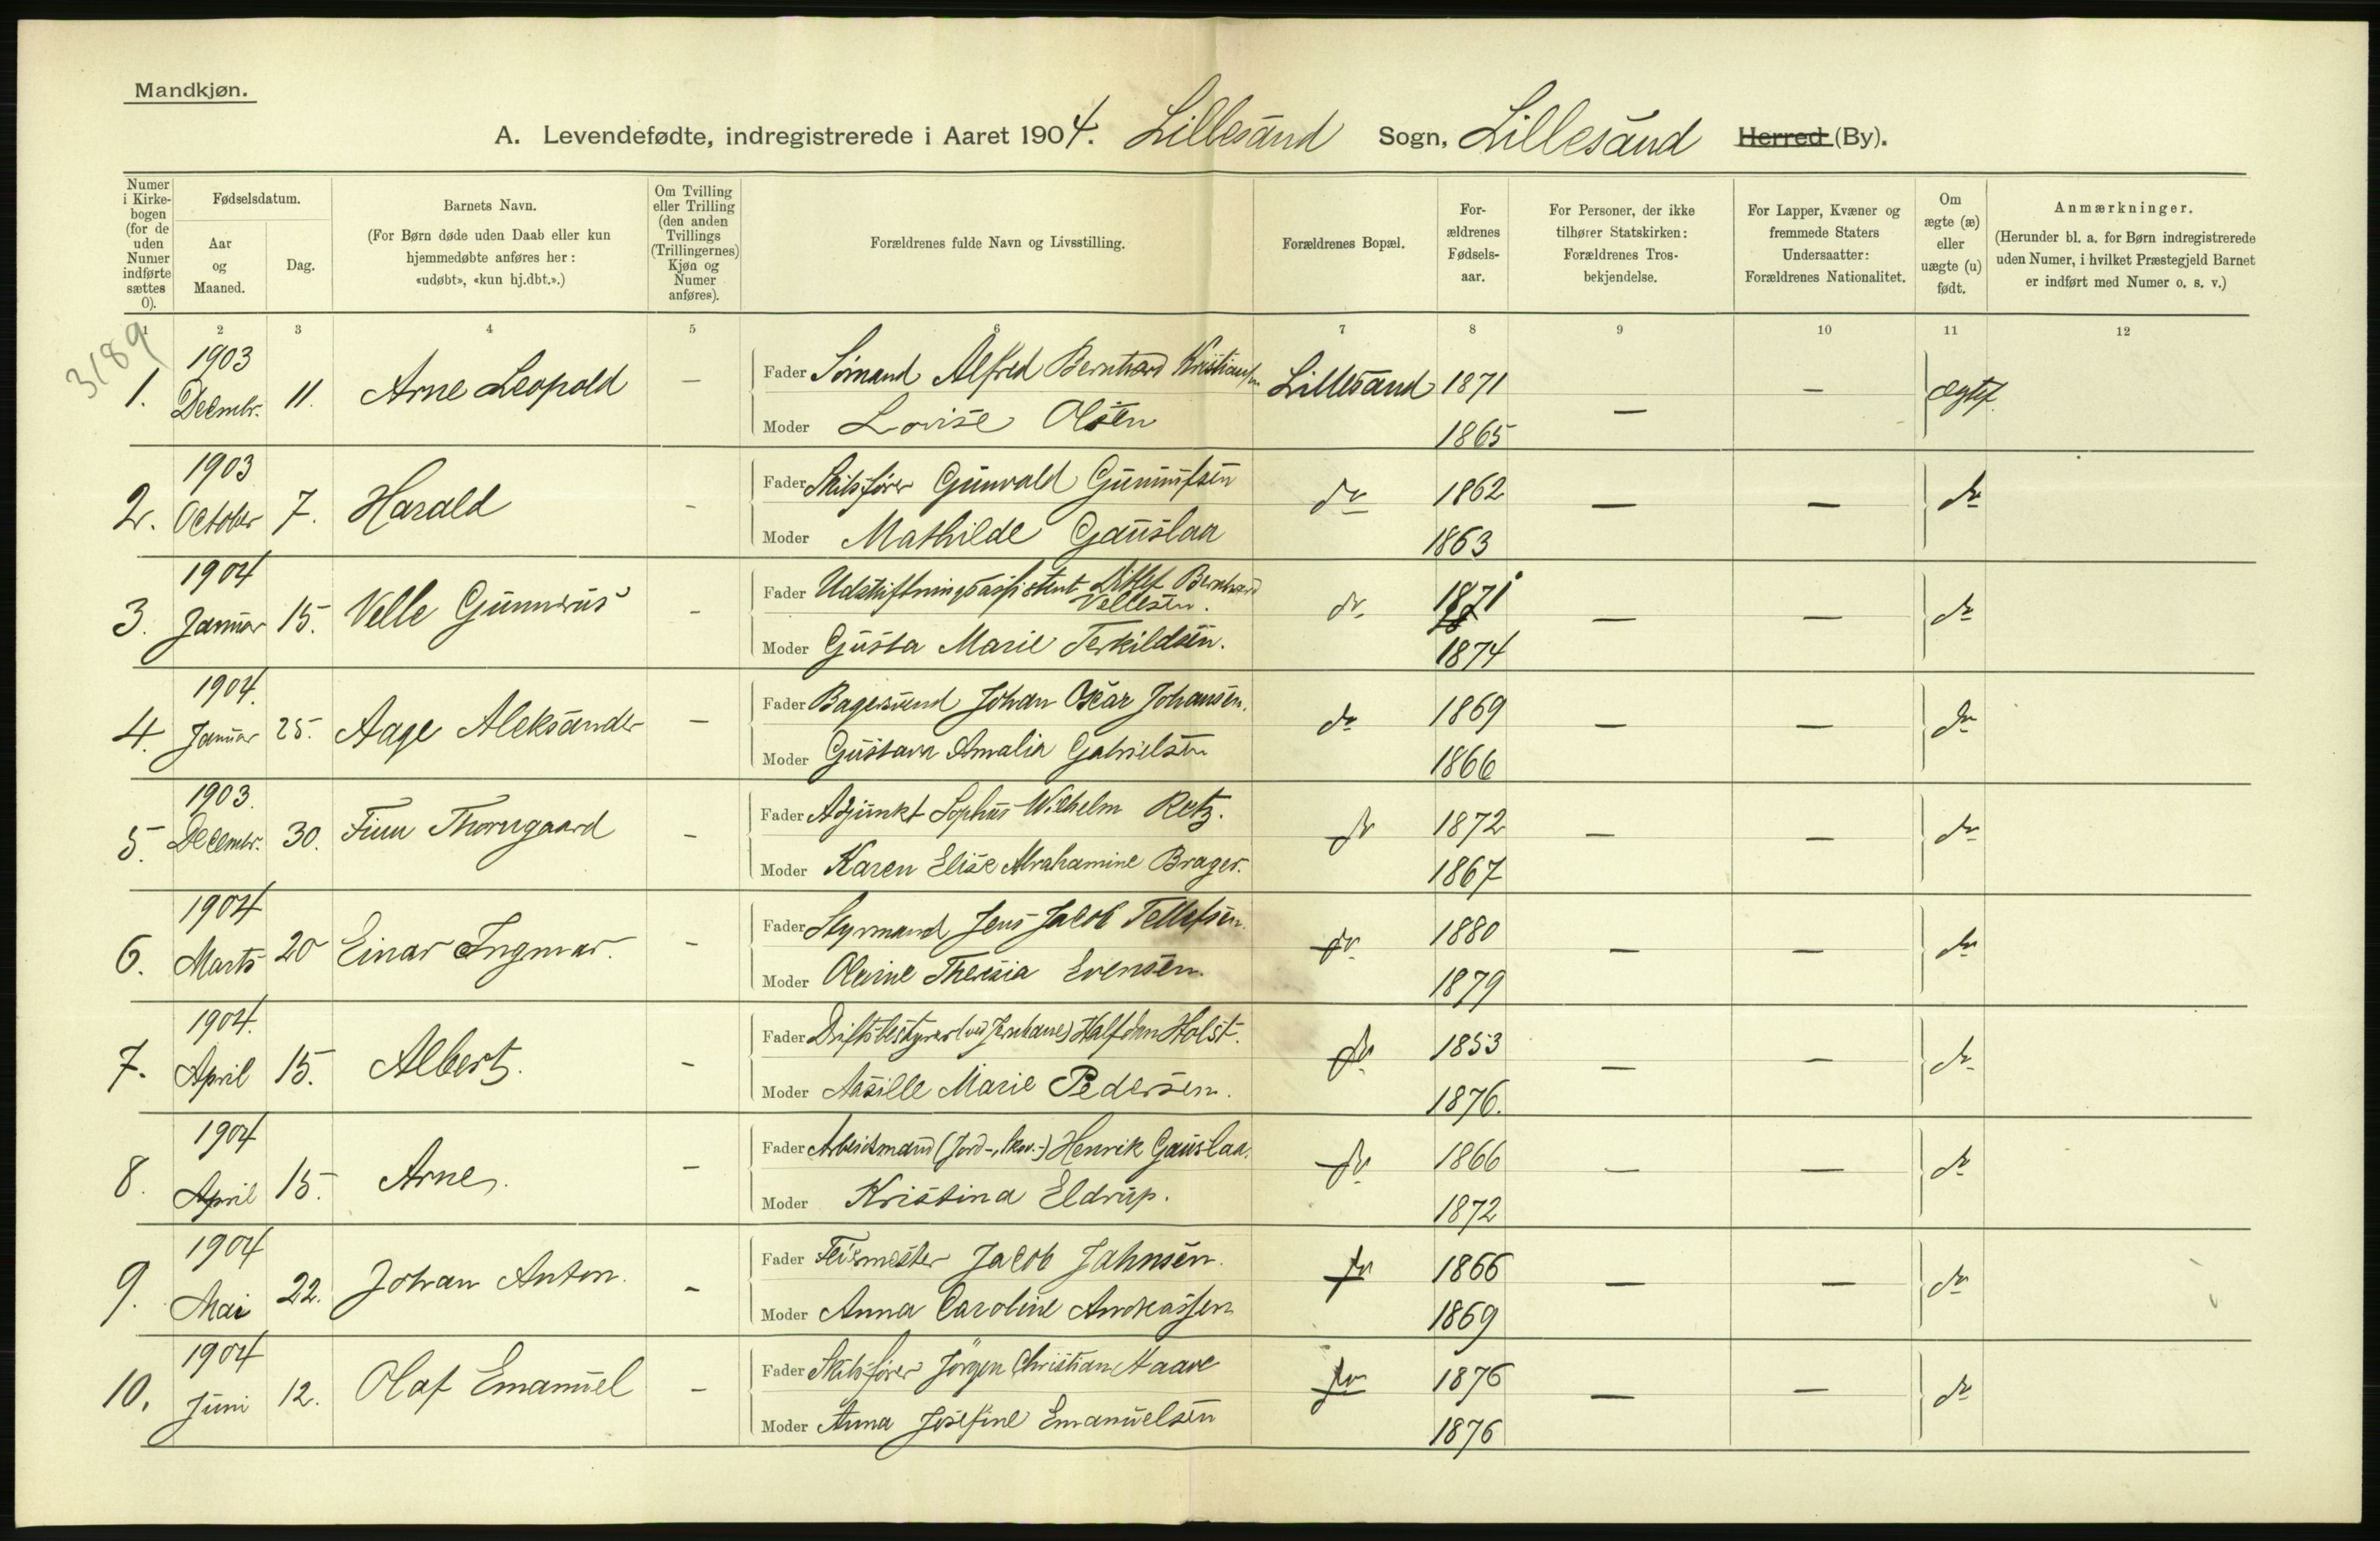 Mandkjøn.
A. Levendefødte, indregistrerede i Aaret 1904. Lillesand Sogn, Lillesand Herred (By).
Numer i Kirkebogen (for de uden Numer indførte sættes 0).
Fødselsdatum.
Aar og Maaned.
Dag.
Barnets Navn.
(For Børn døde uden Daab eller kun hjemmedøbte anføres her: «udøbt», «kun hj.dbt.».)
Om Tvilling eller Trilling (den anden Tvillings (Trillingernes) Kjøn og Numer anføres).
Forældrenes fulde Navn og Livsstilling.
Forældrenes Bopæl.
Forældrenes Fødselsaar.
For Personer, der ikke tilhører Statskirken: Forældrenes Trosbekjendelse.
For Lapper, Kvæner og fremmede Staters Undersaatter: Forældrenes Nationalitet.
Om ægte (æ) eller uægte (u) født.
Anmærkninger.
(Herunder bl. a. for Børn indregistrerede uden Numer, i hvilket Præstegjeld Barnet er indført med Numer o. s. v.)
1 2 3 4 5 6 7 8 9 10 11 12
3189
1. 1903 Decmbr. 11. Arne Leopold – Fader Sömand Alfred Bernhard Kristiansen Lillesand 1871 – – ægtef.
Moder Lovise Olsen 1865
2. 1903 October 7. Harald – Fader Skibsfører Gunvald Gunnufsen do 1862 – – do
Moder Mathilde Gauslaa 1863
3. 1904 Januar 15. Velle Gunnerus – Fader Udskiftningsassistent Ditlef Bernhard Vellesen. do 1871 – – do
Moder Gusta Marie Terkildsen. 1874
4. 1904. Januar 25. Aage Aleksander – Fader Bagersvend Johan Oscar Johansen. do 1869 – – do
Moder Gustava Amalia Gabrielsen 1866
5. 1903. Decembr. 30. Finn Thorngaard – Fader Adjunkt Sophus Wilhelm Retz. do 1872 – – do
Moder Karen Elise Abrahamine Brager. 1867
6. 1904 Marts 20 Einar Ingmar. – Fader Styrmand Jens Jacob Tellefsen. do 1880 – – do
Moder Olevine Theresia Evensen. 1879
7. 1904. April 15. Albert. – Fader Driftsbestyrer (ved Jernbane) Halfdan Holst. do 1853 – – do
Moder Aasille Marie Pedersen. 1876.
8. 1904 April 15. Arne. – Fader Arbeidsmand (Jord-, Skov.-) Henrik Gauslaa. do 1866 – – do
Moder Kristina Eldrup. 1872
9. 1904 Mai 22. Johan Anton. – Fader Feiermester Jacob Jahnsen. do 1866 – – do
Moder Anna Caroline Andreassen 1869
10. 1904 Juni 12. Olaf Emanuel – Fader Skibsfører Jörgen Christian Haave do 1876 – – do
Moder Anna Josefine Emanuelsen 1876